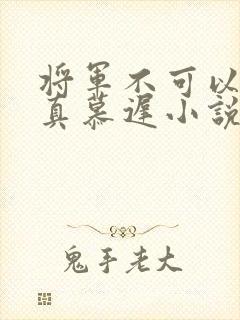 将軍不可以
真慕遲小說
鬼手老大